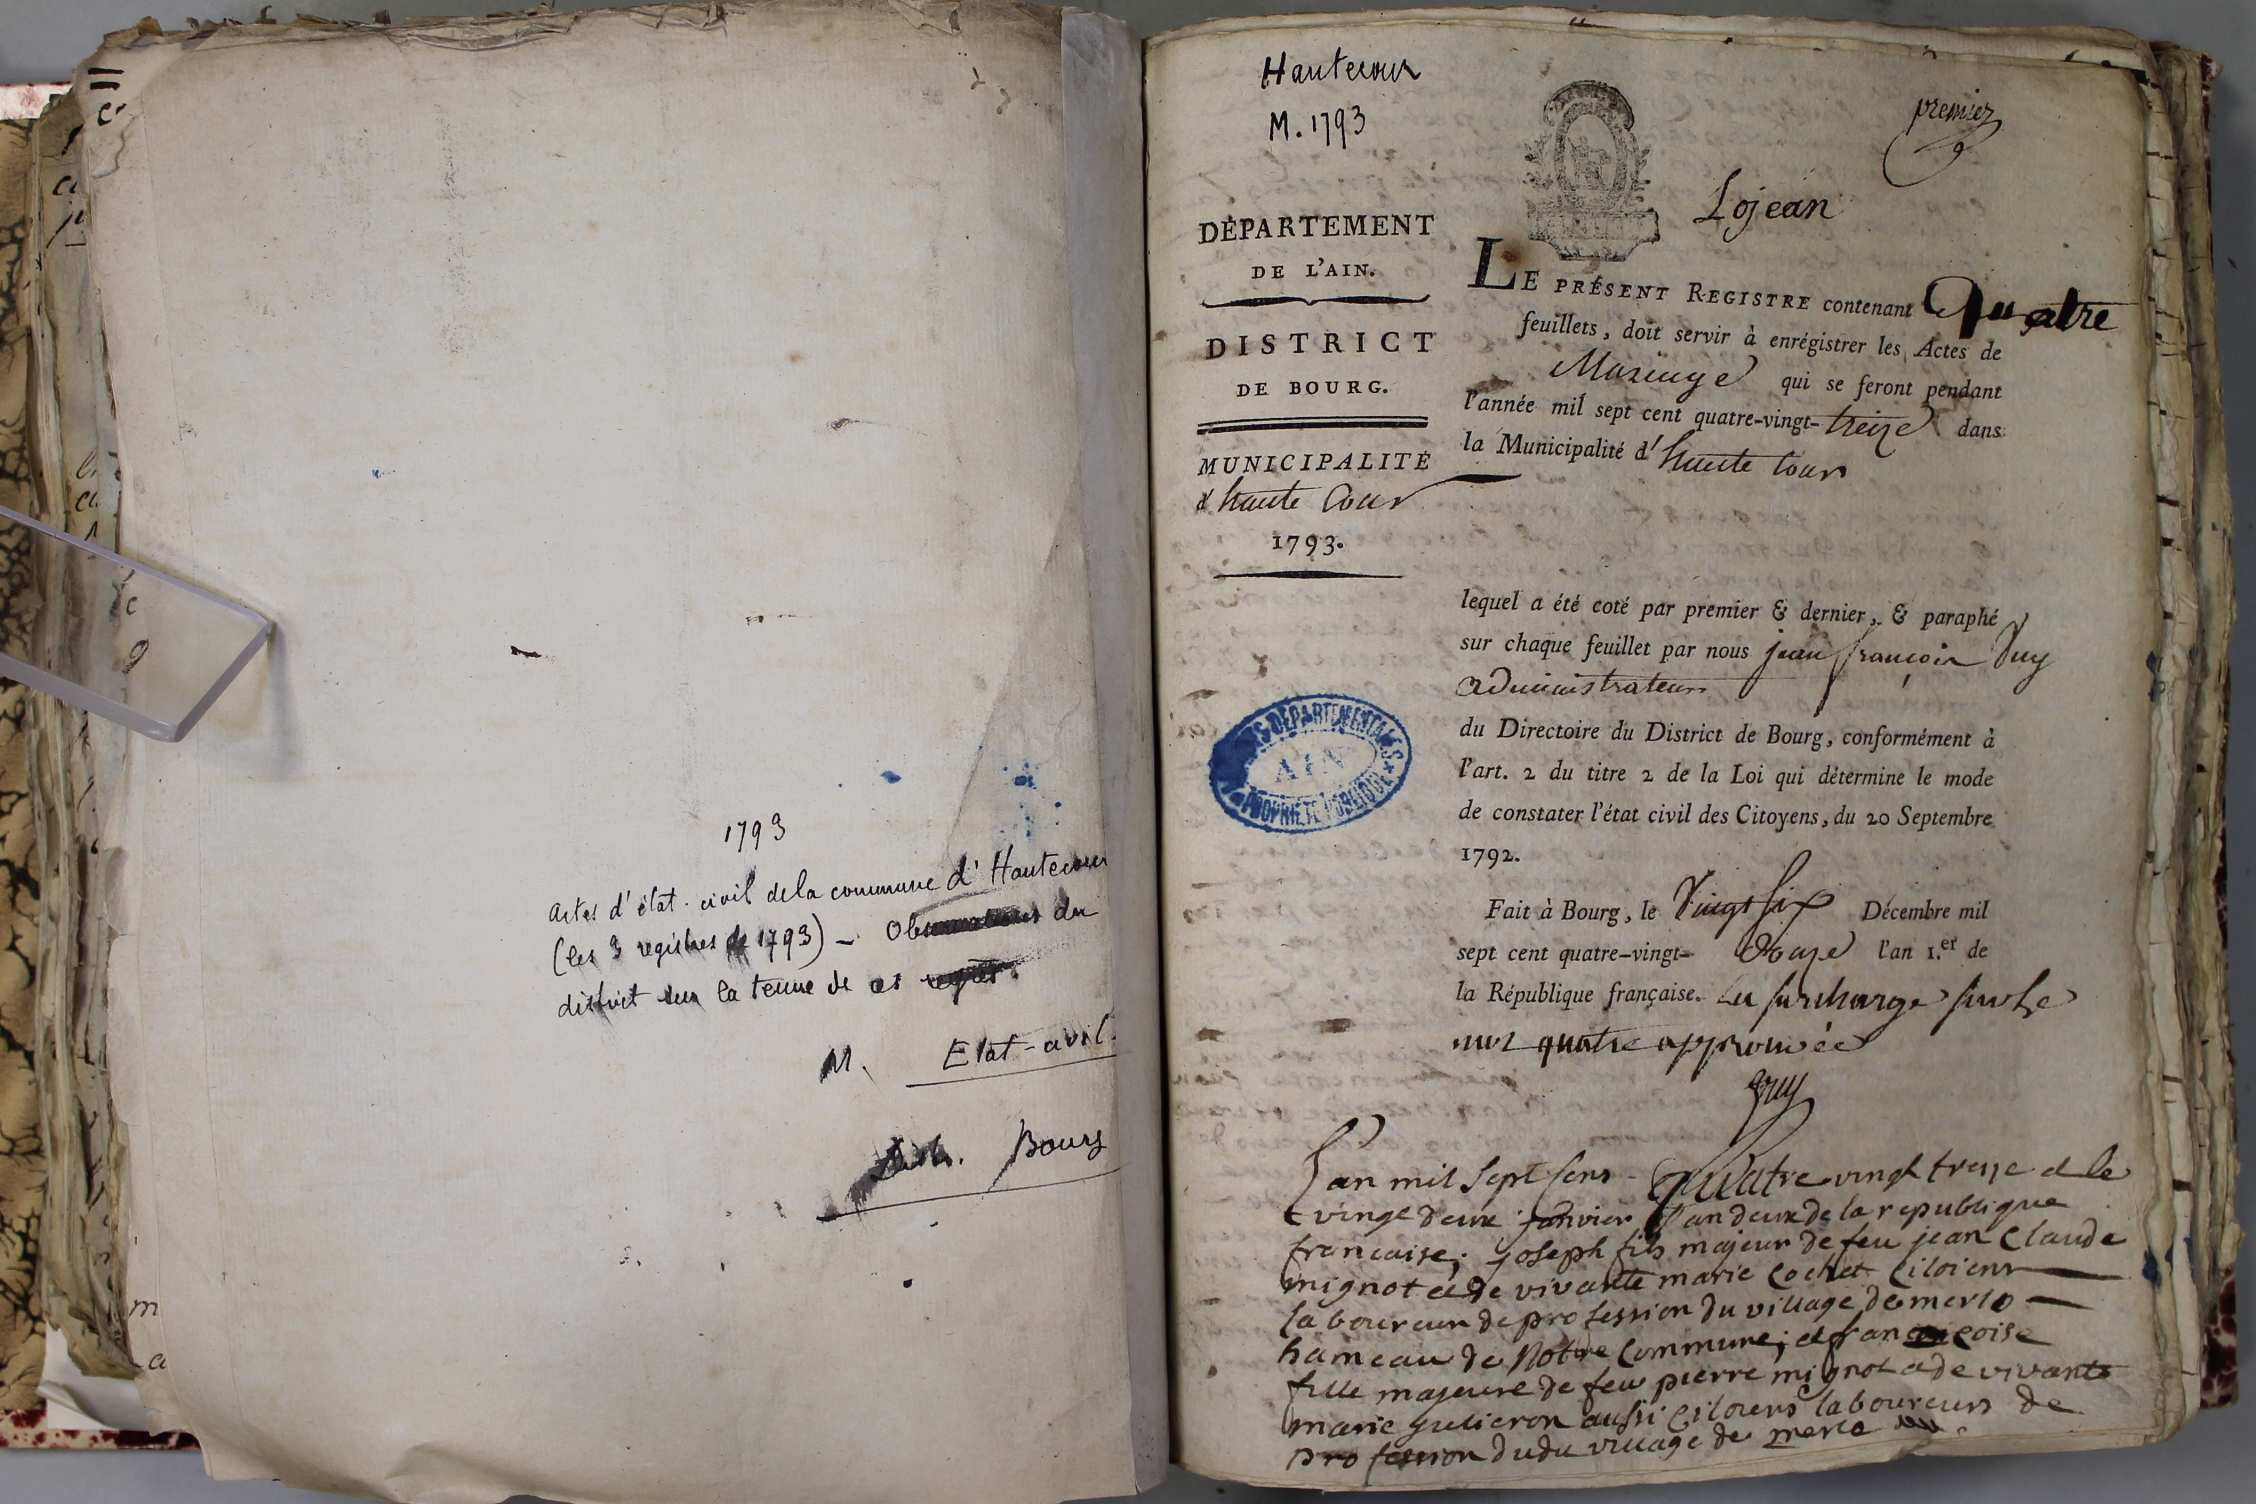 1793
Actes d'état-civil de la commune d'Hautecour
(les 3 registres de 1793) - Observations du
district sur la tenue de ces regres.
M. Etat-civil.
Distr. Bourg
Hautecour
M. 1793
premier
Lojean
DÉPARTEMENT
DE L'AIN.
DISTRICT
DE BOURG.
MUNICIPALITÉ
d'haute Cour
1793.
LE PRÉSENT REGISTRE contenant Quatre
feuillets, doit servir à enrégistrer les Actes de
Mariage qui se feront pendant
l'année mil sept cent quatre-vingt-treize dans
la Municipalité d'haute Cour
lequel a été coté par premier & dernier, & paraphé
sur chaque feuillet par nous jean françois Puy
administrateur
du Directoire du District de Bourg, conformément à
l'art. 2 du titre 2 de la Loi qui détermine le mode
de constater l'état civil des Citoyens, du 20 Septembre
1792.
ARCHIVES DÉPARTEMENTALES
AIN
PROPRIÉTÉ PUBLIQUE
Fait à Bourg, le Vingt six Décembre mil
sept cent quatre-vingt-douze l'an 1.er de
la République française. La surcharge sur le
mot quatre approuvée
Puy
L'an mil sept cens quatre vingt treize et le
vingt deux janvier l'an deux de la republique
francaise; joseph fils majeur de feu jean Claude
mignot et de vivante marie Cochet Citoiens
laboureur de profession du village de merlo
hameau de Notre Commune; et francoise
fille majeure de feu pierre mignot et de vivante
marie guilieron aussi Citoiens laboureurs de
profession dudu village de merlo